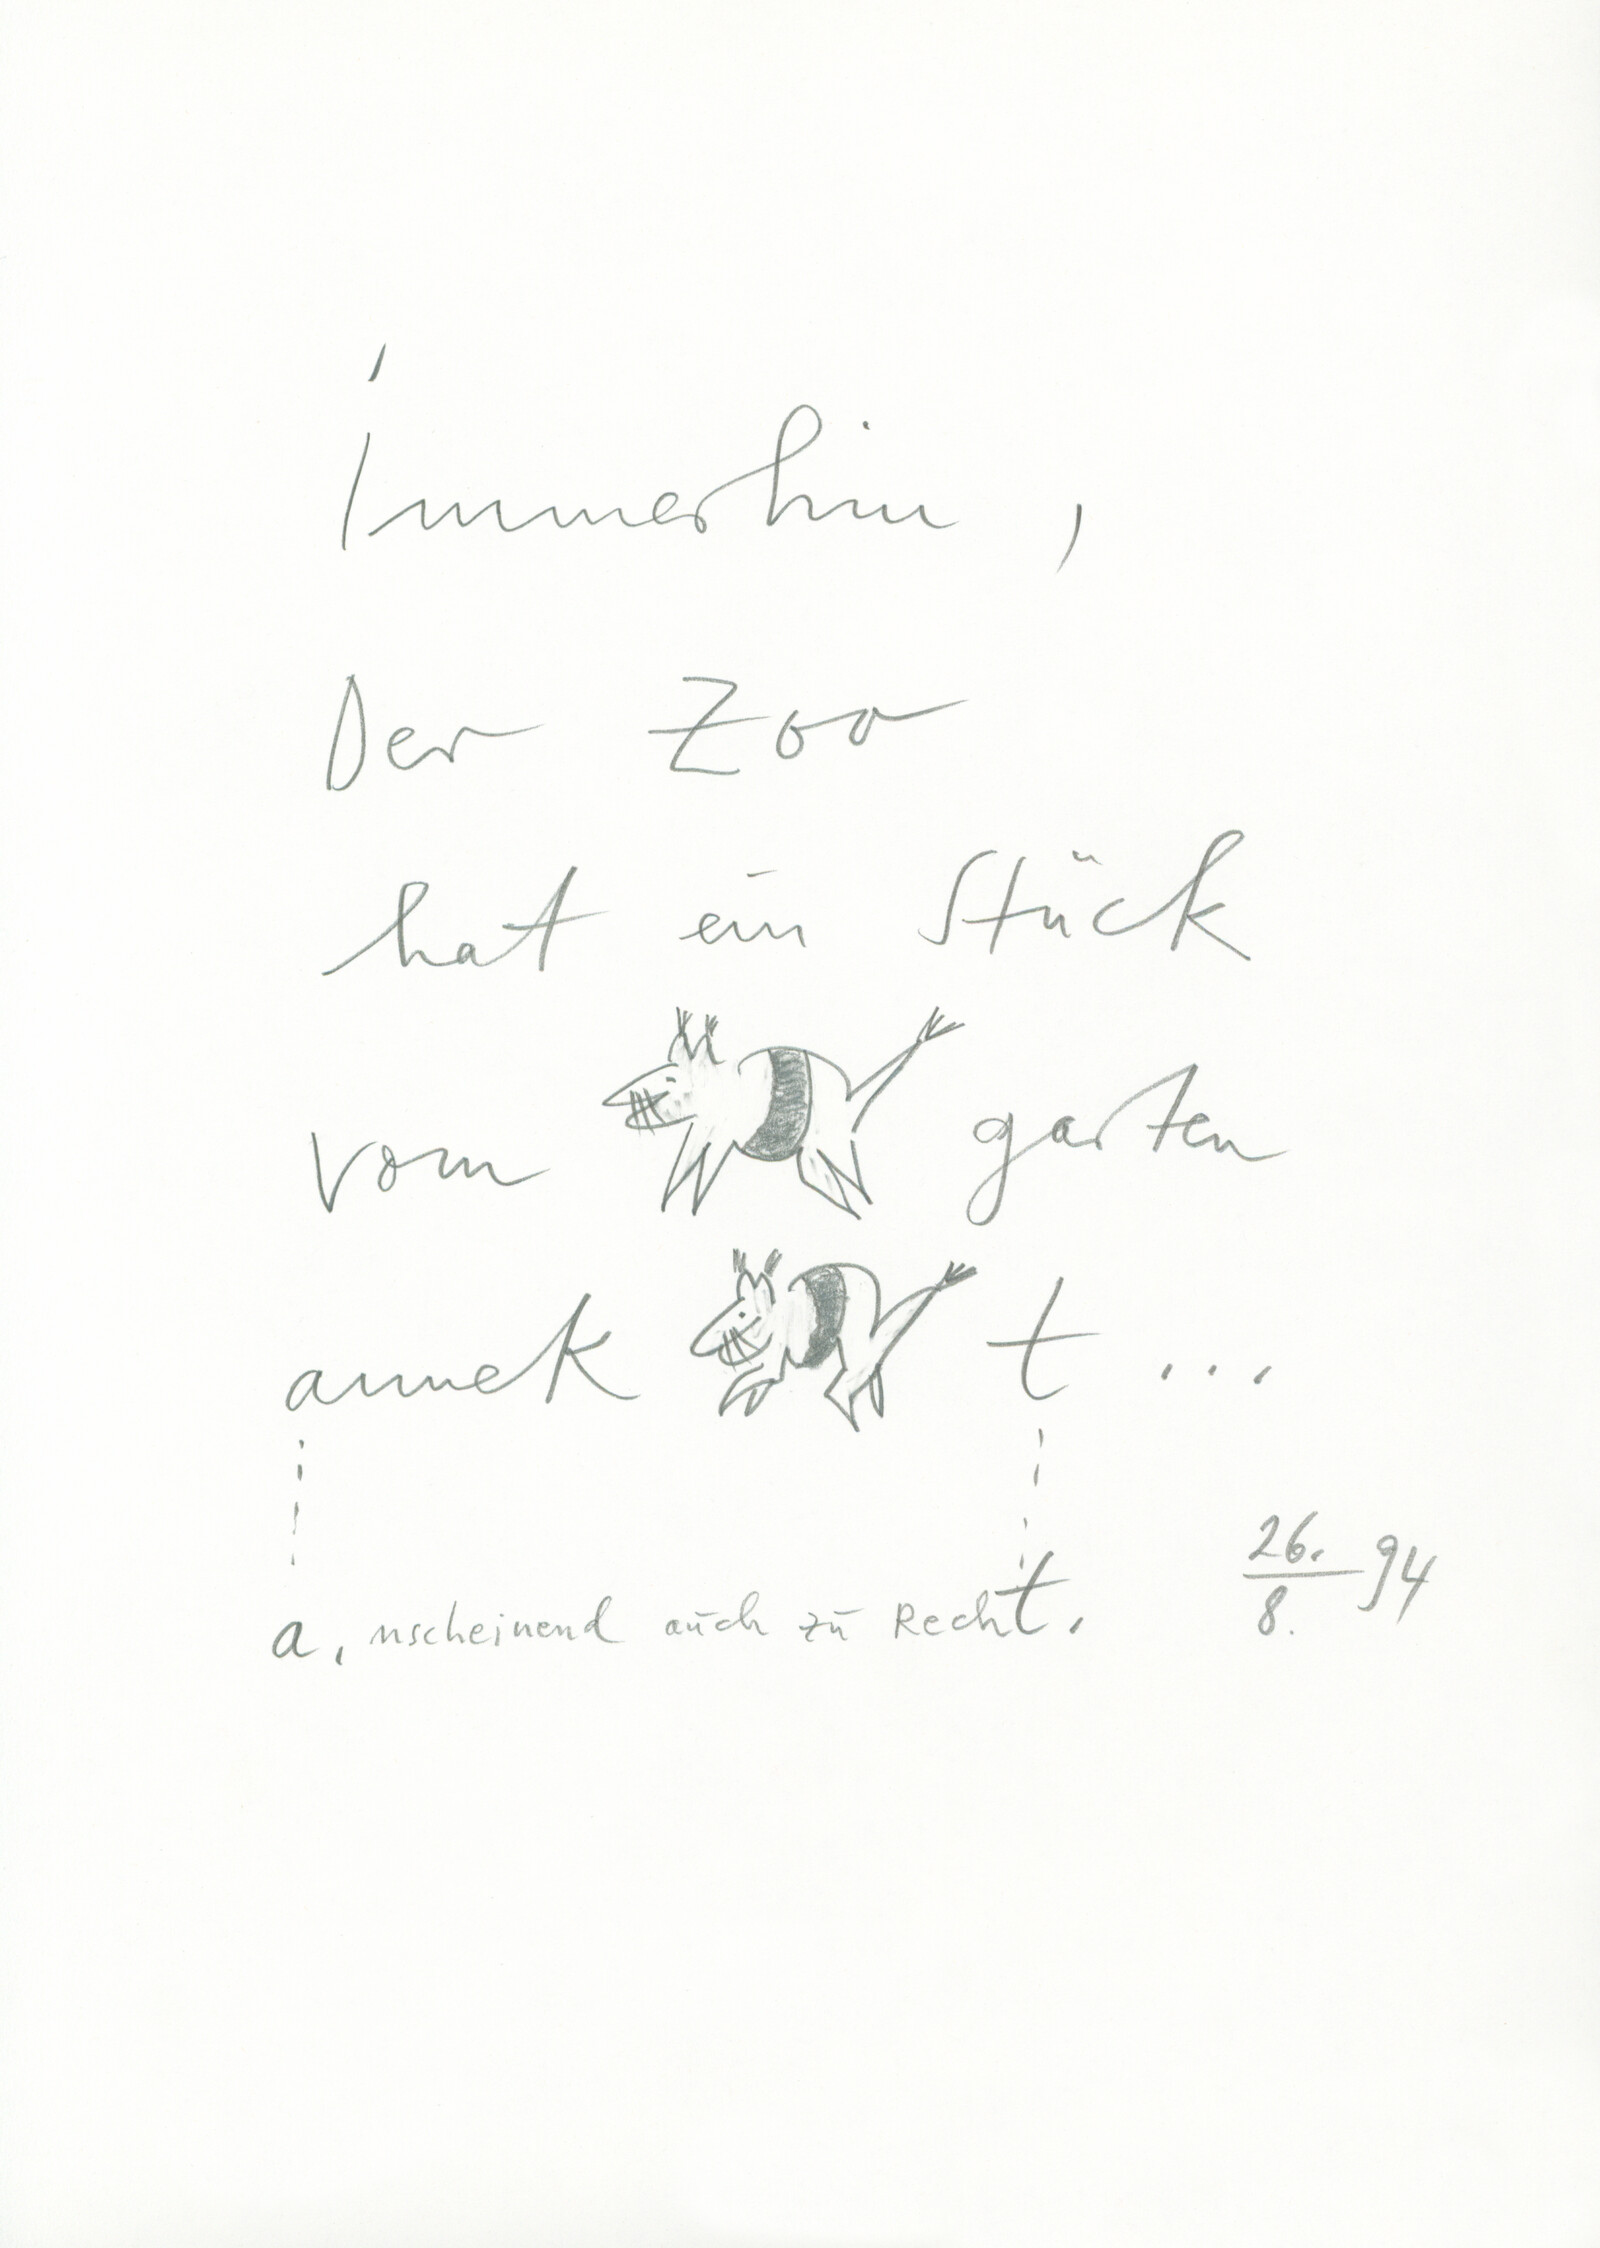 Immerhin,
Der Zoo
hat ein Stück
vom garten
annek t ...
a, nscheinend auch zu Recht.
26. 94
8.